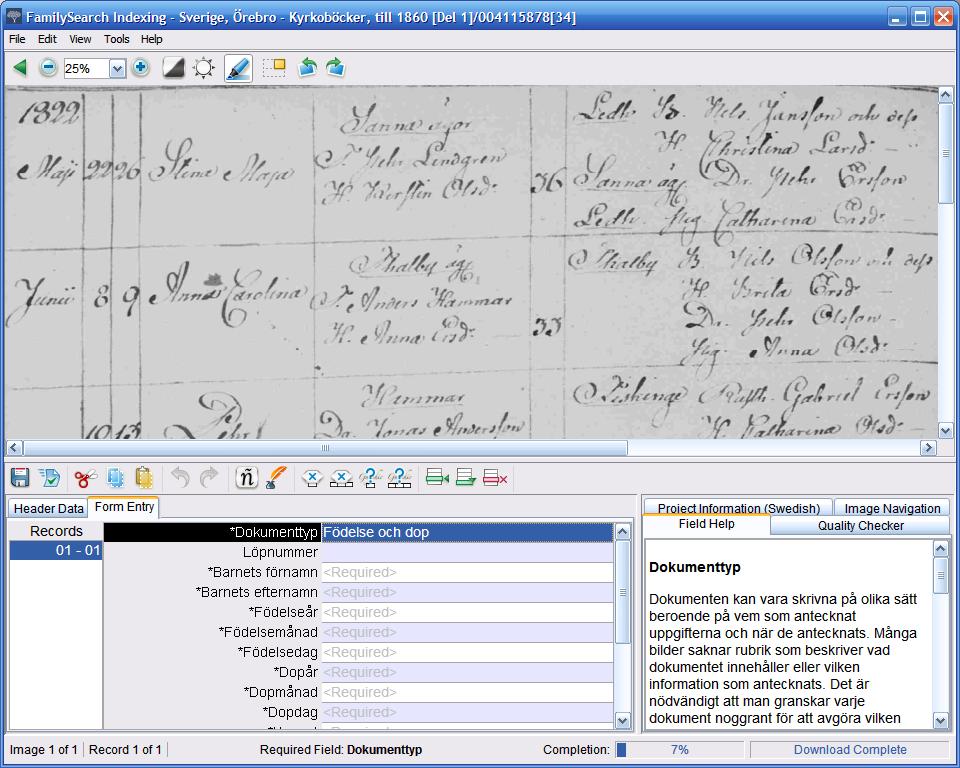 FamilySearch Indexing - Sverige, Örebro - Kyrkoböcker, till 1860 [Del 1]/004115878[34]
File Edit View Tools Help
25%
1822
Maji 22 26 Stina Maja
Sanna ägor
Lindgren
H. Kerstin Olsd.
36
B. Nils Jansson och dess
H. Christina Larsd.
Sanna äg. Dr. Ersson
Catharina Ersd.
Junii 8 9 Anna Carolina
F. Anders Hammar
H. Anna Ersd.
33
B. Nils Olsson och dess
H. Brita Ersd.
Dr. Olsson
Anna Olsd.
Pehr
Hammar
Jonas Andersson
Gabriel Ersson
H. Catharina Olsd.
ñ
Header Data Form Entry
Records
01 - 01
*Dokumenttyp Födelse och dop
Löpnummer
*Barnets förnamn <Required>
*Barnets efternamn <Required>
*Födelseår <Required>
*Födelsemånad <Required>
*Födelsedag <Required>
*Dopår <Required>
*Dopmånad <Required>
*Dopdag <Required>
Project Information (Swedish) Image Navigation
Field Help Quality Checker
Dokumenttyp
Dokumenten kan vara skrivna på olika sätt
beroende på vem som antecknat
uppgifterna och när de antecknats. Många
bilder saknar rubrik som beskriver vad
dokumentet innehåller eller vilken
information som antecknats. Det är
nödvändigt att man granskar varje
dokument noggrant för att avgöra vilken
Image 1 of 1 Record 1 of 1 Required Field: Dokumenttyp Completion: 7% Download Complete